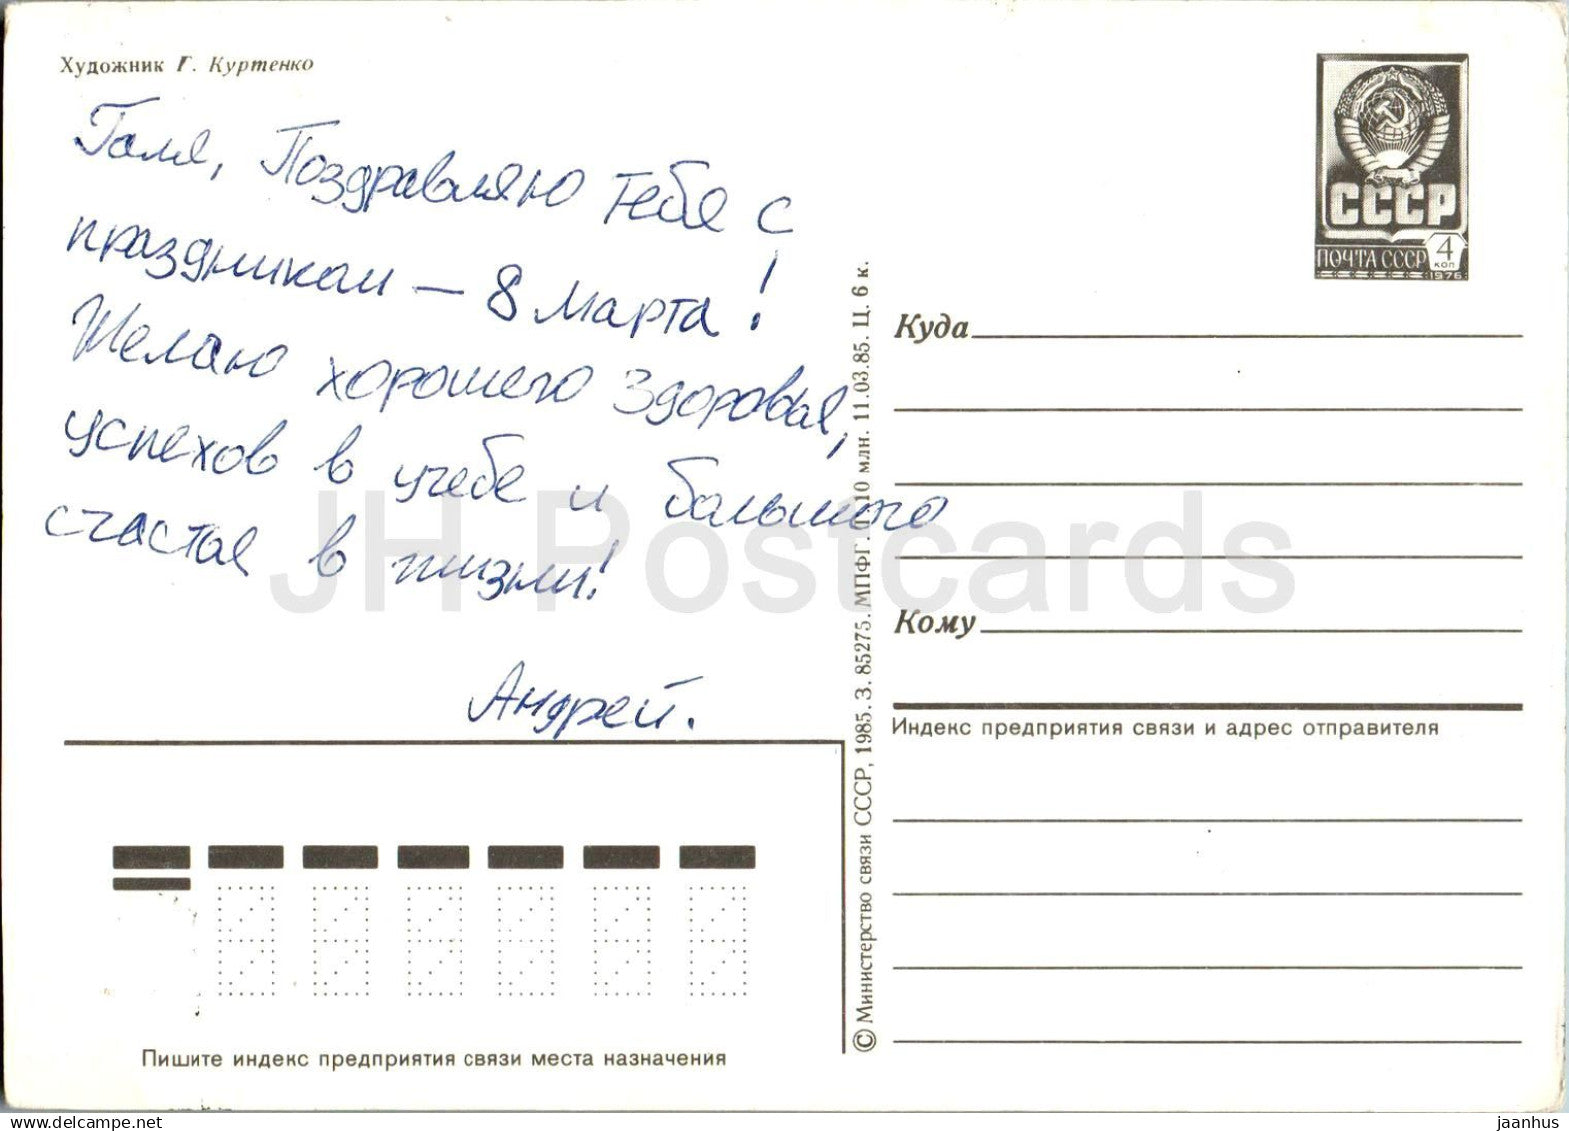 Художник Г. Куртенко
Галя, Поздравляю тебя с
праздником – 8 марта!
Желаю хорошего здоровья,
успехов в учебе и большого
счастья в жизни!
Андрей.
СССР
ПОЧТА СССР
4
КОП
1976
Куда
Кому
Индекс предприятия связи и адрес отправителя
© Министерство связи СССР, 1985. З. 85275. МПФГ. 10 млн. 11.03.85. Ц. 6 к.
Пишите индекс предприятия связи места назначения
JH Postcards
www.delcampe.net
jaanhus